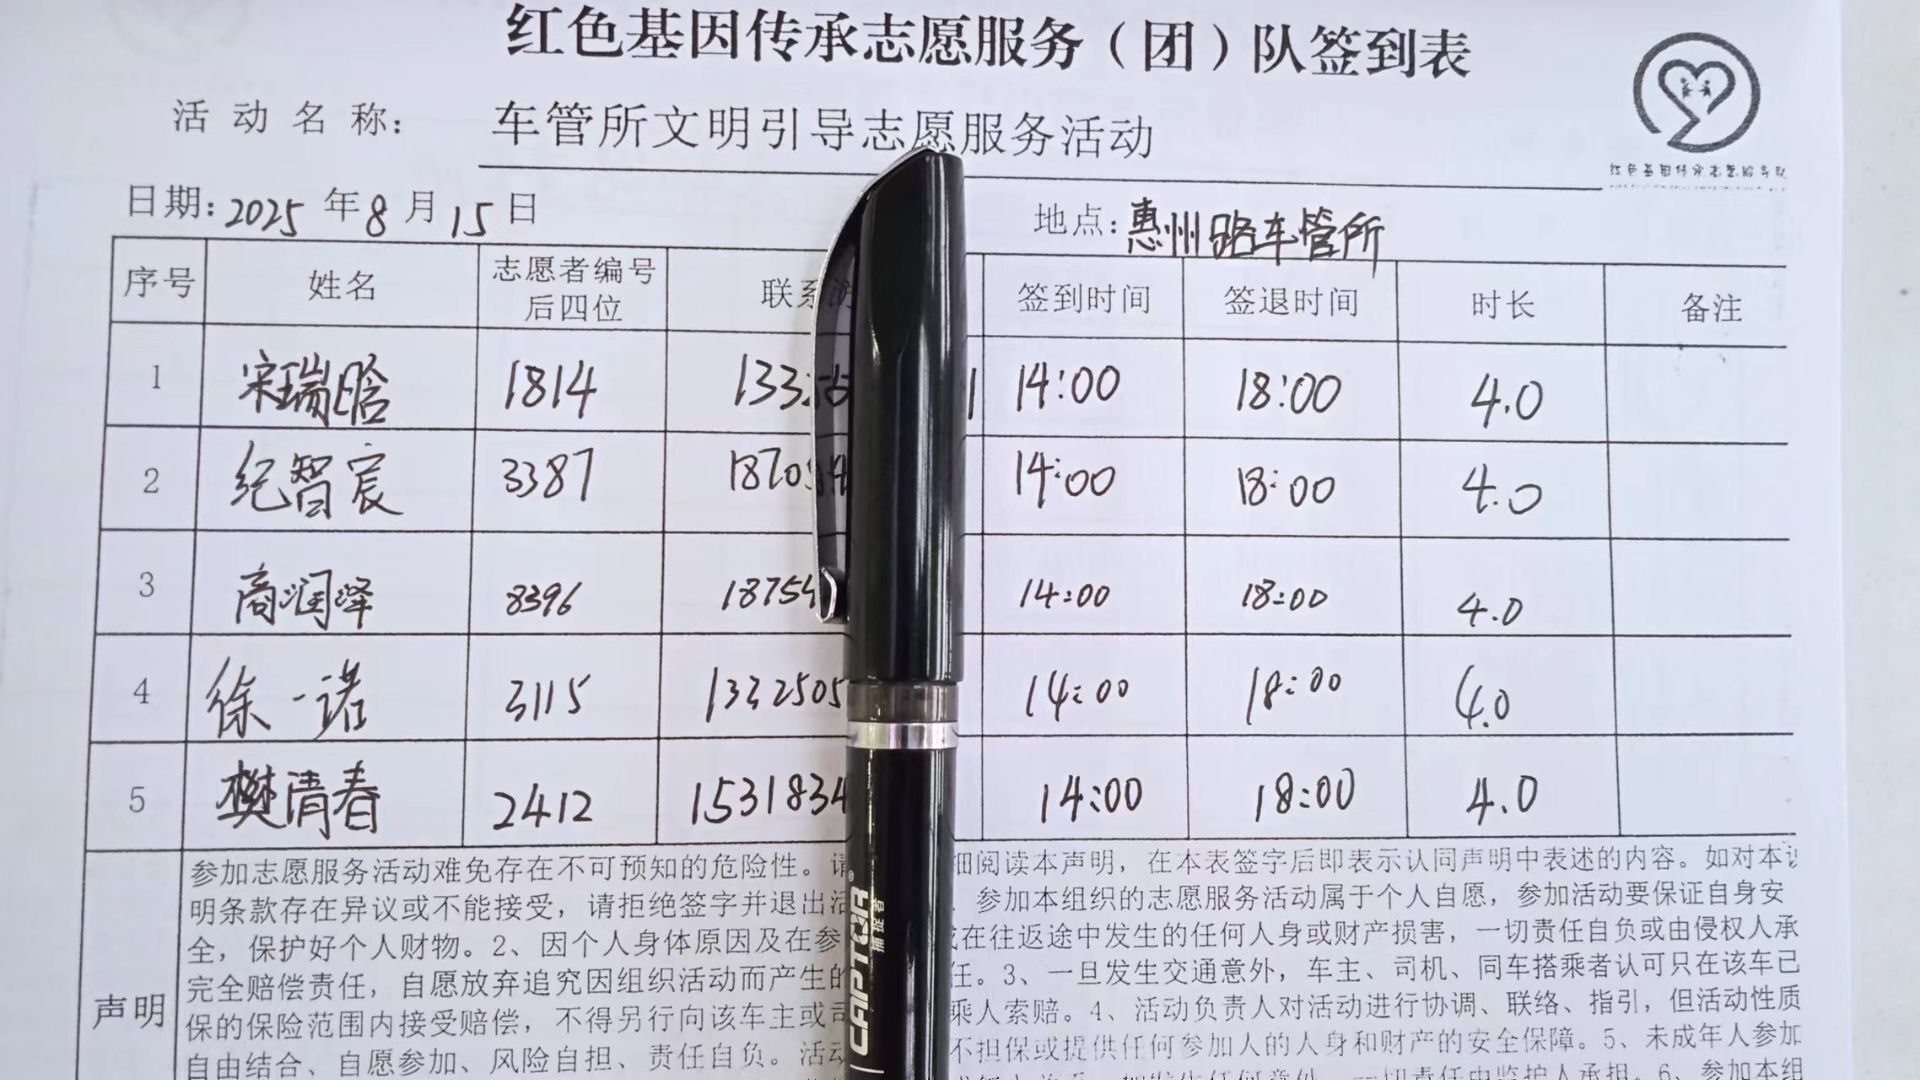 红色基因传承志愿服务（团）队签到表
活动名称： 车管所文明引导志愿服务活动
红色基因传承志愿服务队
日期：2025年8月15日 地点：惠州路车管所
序号 姓名 志愿者编号后四位 联系 签到时间 签退时间 时长 备注
1 宋瑞晗 1814 133 1 14:00 18:00 4.0
2 纪智宸 3387 1870 14:00 18:00 4.0
3 商润泽 8396 18754 14:00 18:00 4.0
4 徐一诺 3115 1332505 14:00 18:00 4.0
5 樊清春 2412 1531834 14:00 18:00 4.0
声明
参加志愿服务活动难免存在不可预知的危险性。请 细阅读本声明，在本表签字后即表示认同声明中表述的内容。如对本
明条款存在异议或不能接受，请拒绝签字并退出活 参加本组织的志愿服务活动属于个人自愿，参加活动要保证自身安
全，保护好个人财物。2、因个人身体原因及在参 或在往返途中发生的任何人身或财产损害，一切责任自负或由侵权人承
完全赔偿责任，自愿放弃追究因组织活动而产生的 任。3、一旦发生交通意外，车主、司机、同车搭乘者认可只在该车已
保的保险范围内接受赔偿，不得另行向该车主或司 乘人索赔。4、活动负责人对活动进行协调、联络、指引，但活动性质
自由结合、自愿参加、风险自担、责任自负。活动 不担保或提供任何参加人的人身和财产的安全保障。5、未成年人参加
一切责任由监护人承担。6、参加本组
CAPTOR®
捕捉者